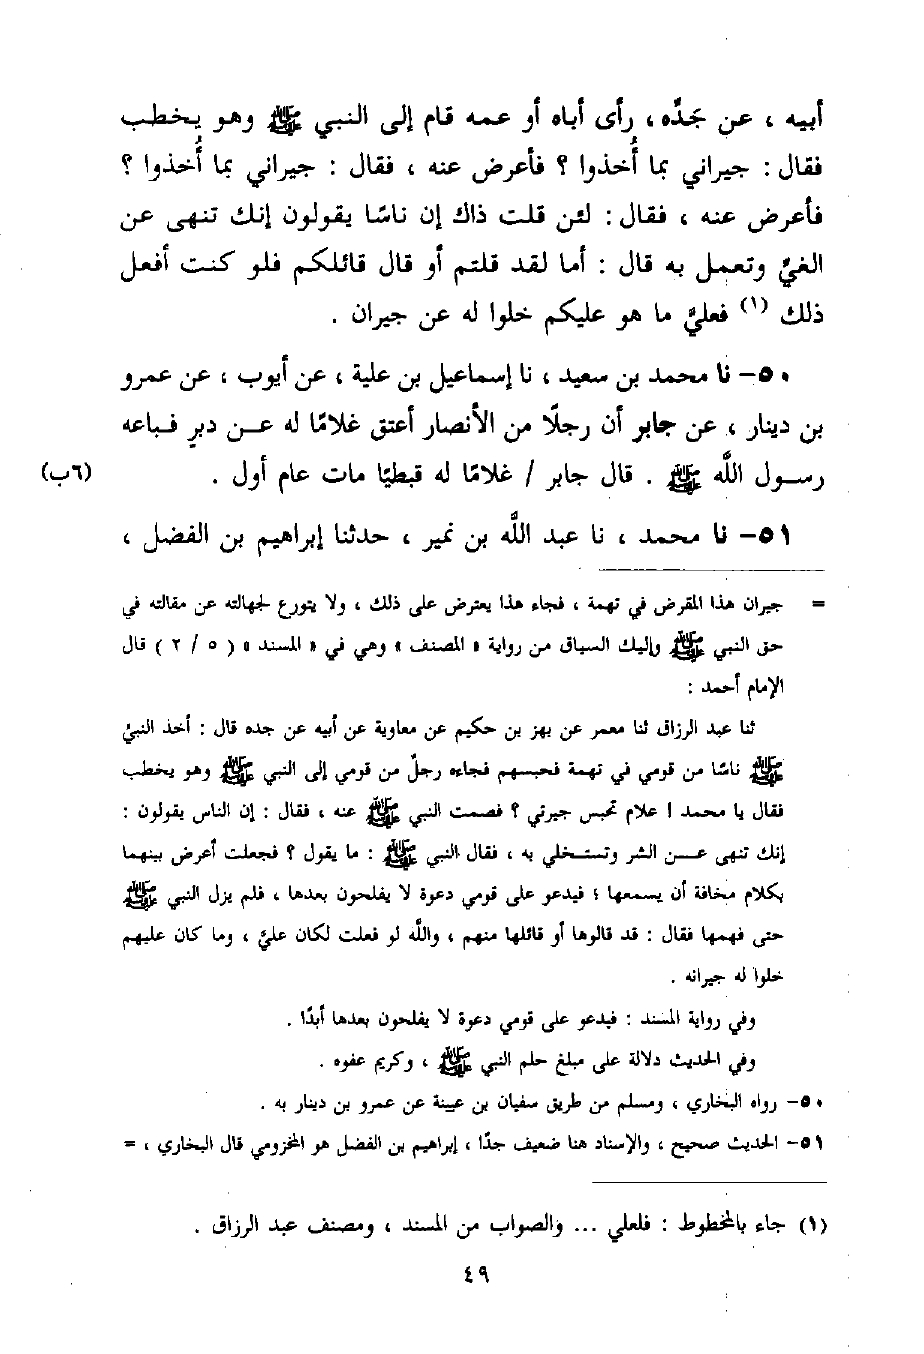 أبيه ، عن جَدِّه ، رأى أباه أو عمه قام إلى النبي ﷺ وهو يخطب
فقال : جيراني بما أُخذوا ؟ فأعرض عنه ، فقال : جيراني بما أُخذوا ؟
فأعرض عنه ، فقال : لئن قلت ذاك إن ناسًا يقولون إنك تنهى عن
الغيِّ وتعمل به قال : أما لقد قلتم أو قال قائلكم فلو كنت أفعل
ذلك (١) فعليَّ ما هو عليكم خلوا له عن جيران .
٥٠- نا محمد بن سعيد ، نا إسماعيل بن علية ، عن أيوب ، عن عمرو
بن دينار ، عن جابر أن رجلًا من الأنصار أعتق غلامًا له عن دبرٍ فباعه
رسول اللَّه ﷺ . قال جابر / غلامًا له قبطيًا مات عام أول . (٦ب)
٥١- نا محمد ، نا عبد اللَّه بن نمير ، حدثنا إبراهيم بن الفضل ،
= جيران هذا المقرض في تهمة ، فجاء هذا يعترض على ذلك ، ولا يتورع لجهالته عن مقالته في
حق النبي ﷺ وإليك السياق من رواية « المصنف » وهي في « المسند » ( ٥ / ٢ ) قال
الإمام أحمد :
ثنا عبد الرزاق ثنا معمر عن بهز بن حكيم عن معاوية عن أبيه عن جده قال : أخذ النبيُّ
ﷺ ناسًا من قومي في تهمة فحبسهم فجاءه رجلٌ من قومي إلى النبي ﷺ وهو يخطب
فقال يا محمد ! علام تحبس جيرتي ؟ فصمت النبي ﷺ عنه ، فقال : إن الناس يقولون :
إنك تنهى عن الشر وتستخلي به ، فقال النبي ﷺ : ما يقول ؟ فجعلت أعرض بينهما
بكلام مخافة أن يسمعها ؛ فيدعو على قومي دعوة لا يفلحون بعدها ، فلم يزل النبي ﷺ
حتى فهمها فقال : قد قالوها أو قائلها منهم ، واللَّه لو فعلت لكان عليَّ ، وما كان عليهم
خلوا له جيرانه .
وفي رواية المسند : فيدعو على قومي دعوة لا يفلحون بعدها أبدًا .
وفي الحديث دلالة على مبلغ حلم النبي ﷺ ، وكريم عفوه .
٥٠- رواه البخاري ، ومسلم من طريق سفيان بن عيينة عن عمرو بن دينار به .
٥١- الحديث صحيح ، والإسناد هنا ضعيف جدًا ، إبراهيم بن الفضل هو المخزومي قال البخاري ، =
(١) جاء بالمخطوط : فلعلي ... والصواب من المسند ، ومصنف عبد الرزاق .
٤٩